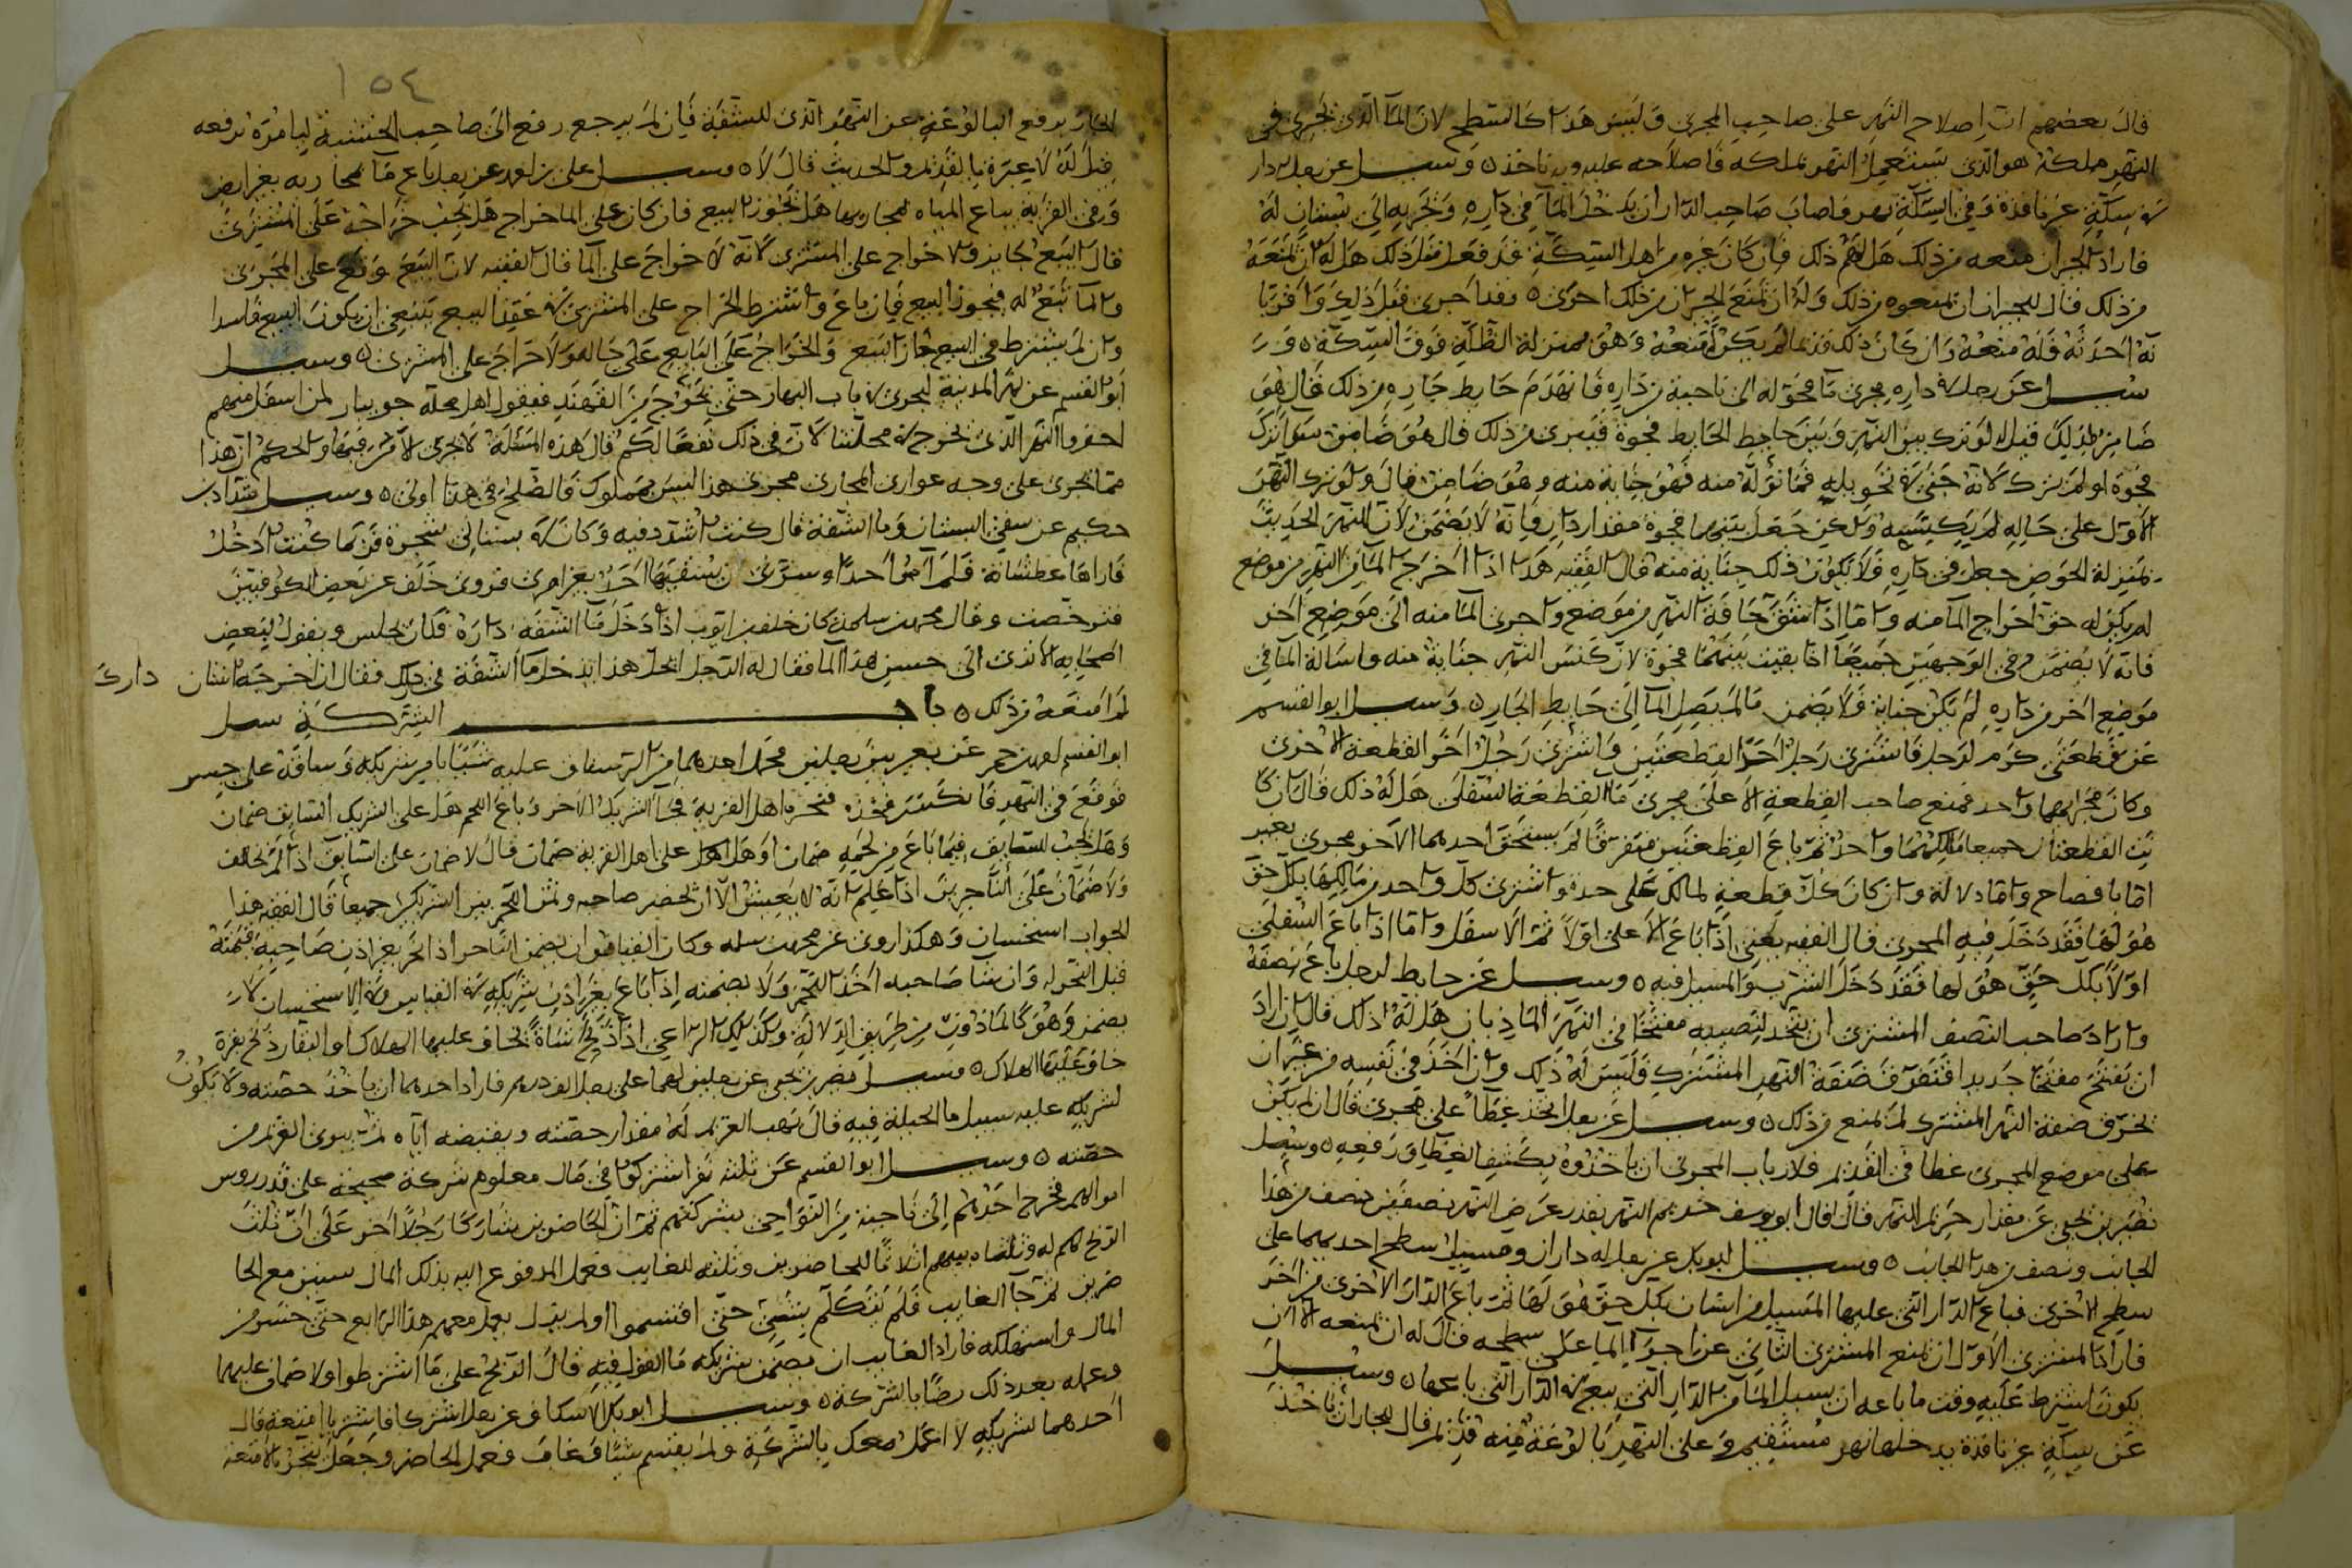 قال بعضهم ان اصلاح النهر على صاحب المجرى وليس هذا كالسطح لان الماء الذى يجرى فى
النهر ملكه هو الذى يستعمل النهر بملكه فاصلاحه عليه وبه ناخذ ه وسيل عن رجل له دار
فى سكة غير نافذة وفى السكة نهر فاصاب صاحب الدار ان يدخل الماء فى داره ويجريه الى بستان له
فاراد الجيران منعه من ذلك هل لهم ذلك فان كان غيره من اهل السكة قد فعل مثل ذلك هل له ان يمنعه
من ذلك قال للجيران ان يمنعوه من ذلك وله ان يمنع الجيران من ذلك اجرى قبل ذلك واقر با
نه احدثه فله منعه وان كان ذلك قديما لم يكن له منعه وهو بمنزلة الظلة فوق السكة ه و
سيل عن رجل فى داره مجرى ماء فحوله الى ناحية من داره فانهدم حايط جاره من ذلك قال هو
ضامن لذلك قيل له لو ترك بين النهر وبين حايط الحايط فجوة من ذلك قال هو ضامن سواء ترك
فجوة او لم يترك لانه جنى فى تحويله فما تولد منه فهو جناية منه وهو ضامن قال ولو ترك النهر
الاول على حاله لم يكبسه ولكن جعل بينهما فجوة مقدار دار فانه لا يضمن لان النهر الحديث
بمنزلة الحوض جعل فى داره ولا يكون ذلك جناية منه قال الفقيه هذا اذا اخرج الماء من النهر من موضع
لم يكن له حق اخراج الماء منه واما اذا شق حافة النهر من موضع واجرى الماء منه الى موضع اخر
فانه لا يضمن وفى الوجهين جميعا اذا بقيت بينهما فجوة لان كنس النهر جناية منه واسالة الماء فى
موضع اخر من داره لم يكن جناية ولا يضمن مالم يصل الماء الى حايط الجار ه وسيل ابو القسم
عن قطعتى كرم لرجل فاشترى رجل احد القطعتين واشترى رجل اخر القطعة الاخرى
وكان مجراهما واحد فمنع صاحب القطعة الاعلى مجرى ماء القطعة السفلى هل له ذلك قال ان كا
نت القطعتان جميعا مالكهما واحد ثم باع القطعتين متفرقا لم يستحق احدهما الاخر مجرى بغير
اما بافصاح واما دلالة وان كان كل قطعة لمالك على حدة واشترى كل واحد من مالكها بكل حق
هو لها فقد دخل فيه المجرى قال الفقيه يعنى اذا باع الاعلى اولا ثم الاسفل واما اذا باع السفلى
اولا بكل حق هو لها فقد دخل الشرب والمسيل فيه ه وسيل عن حايط لرجل باع نصفه
واراد صاحب النصف المشترى ان يتخذ لنصيبه مفتحا فى النهر هل له ذلك قال ان اراد
ان يفتح مفتحا جديدا فى ضفة النهر المشترك فليس له ذلك وان اخذ فى نفسه من غير ان
يخرق ضفة النهر المشترك لم يمنع من ذلك ه وسيل عن رجل اتخذ غطاء على مجرى قال ان لم يكن
على موضع المجرى غطا فى القديم فلارباب المجرى ان ياخذوه بكشف الغطا ورفعه ه وسيل
نصير بن يحيى عن مقدار حريم النهر قال قال ابو يوسف حريم النهر بقدر عرض النهر نصفين نصف من هذا
الجانب ونصف من هذا الجانب ه وسيل ابو بكر عن رجل له داران ومسيل سطح احديهما على
سطح الاخرى فباع الدار التى عليها المسيل من انسان بكل حق هو لها ثم باع الدار الاخرى من اخر
فاراد المشترى الاول ان يمنع المشترى الثانى عن اجراء الماء على سطحه قال له ان يمنعه الا ان
يكون اشترط عليه وقت ما باعه ان مسيل الماء من الدار التى بيع فى الدار التى باعها ه وسيل
عن سكة غير نافذة يدخلها نهر وعلى النهر بالوعة قديم قال للجار ان ياخذ
١٥٤
الجار برفع البالوعة عن النهر الذى للسقية فان لم يرجع رفع الى صاحب الحسبة ليامره برفعه
قيل له لا عبرة بالقديم والحديث قال لا ه وسيل على بن احمد عن رجل باع ماء بمجاريه بغير ارض
وفى القرية يباع المياه بمجاريها هل يجوز البيع فان كان على الما خراج هل يجب خراجه على المشترى
قال البيع جايز ولا خراج على المشترى لانه لا خراج على الما قال الفقيه لان البيع وقع على المجرى
والماء تبع له فيجوز البيع فان باع واشترط الخراج على المشترى فى عقد البيع ينبغى ان يكون البيع فاسدا
وان لم يشترط فى البيع جاز البيع والخراج على البايع على حاله ولا خراج على المشترى ه وسيل
ابو القسم عن نهر المدينة ليجرى فى باب النهار حتى يخرج من القهند فيقول اهل محلة جوبار لمن اسفل منهم
احفروا النهر الذى يخرج فى محلتنا لان فى ذلك نفعا لكم قال هذه المسئلة لا يجرى الامر فيها والحكم ان هذا
مما يجرى على وجه عوارى المجارى مجرى هذا ليس بمملوك فالصلح فى هذا اولى ه وسيل شداد بن
حكيم عن سقى البستان وما الشفة قال كنت اشدد فيه وكان فى بستانى شجرة فربما كنت ادخل
فاراها عطشانة فلم آمر احدا وسرنى ان يسقيها احد بغير امرى فروى خلف عن بعض الكوفيين
فترخصت وقال محمد بن سلمة كان خلف بن ايوب اذا دخل ماء الشفة داره فكان يجلس ويقول لبعض
اصحابه الا ترى الى حسن هذا الما فقال له الرجل اتحل هذا يدخل ماء الشفة فى دارك فقال ان اخرجه انسان دارك
لم امنعه من ذلك ه باب الشركة سيل
ابو القسم احمد بن حم عن بعير بين رجلين فحمل احدهما من الرستاق عليه شيئا بامر شريكه وساقه على جسر
فوقع فى النهر فانكسر فخذه فنحره اهل القرية فجاء الشريك الاخر وباع اللحم هل على الشريك السايق ضمان
وهل يجب للسايق فيما باع من لحمه ضمان او هل على اهل القرية ضمان قال لا ضمان على السايق اذا لم يخالف
ولا ضمان على الناحرين اذا علم انه لا يعيش الا ان يحضر صاحبه وثمن اللحم بين الشريكين جميعا قال الفقيه هذا
الجواب استحسان وهكذا روى عن محمد بن سلمه وكان القياس ان يضمن الناحر اذا نحر بغير اذن صاحبه قيمته
قبل النحر له وان شا صاحبه اخذ اللحم ولا يضمنه اذا باع بغير اذن شريكه فى القياس وفى الاستحسان لا
يضمن وهو كالماذون من طريق الدلالة وكذلك الراعى اذا ذبح شاة يخاف عليها الهلاك او البقار ذبح بقرة
خاف عليها الهلاك ه وسيل نصير بن يحيى عن رجلين لهما على رجل الف درهم فاراد احدهما ان ياخذ حصته ولا يكون
لشريكه عليه سبيل ما الحيلة فيه قال يهب الغريم له مقدار حصته ويقبضه اياه ثم يبرى الغريم من
حصته ه وسيل ابو القسم عن ثلثة نفر اشتركوا فى مال معلوم شركة صحيحة على قدر روس
اموالهم فخرج احدهم الى ناحية من النواحى بشركتهم ثم ان الحاضرين شاركا رجلا اخر على ان ثلث
الربح لهم له وثلثاه بينهم اثلاثا للحاضرين وثلثه للغايب فعمل المدفوع اليه بذلك المال سنين مع الحا
ضرين ثم جا الغايب فلم يتكلم بشئ حتى اقتسموا ولم يزل يعمل معهم هذا الرابع حتى خسر من
المال واستهلكه فاراد الغايب ان يضمن شريكه ما القول فيه قال الربح على ما اشترطوا ولا ضمان عليهما
وعمله بعد ذلك رضا بالشركة ه وسيل ابو بكر الاسكاف عن رجلين اشتركا فاشتريا امتعة قال
احدهما لشريكه لا اعمل معك بالشركة ولم يقتسم شيئا وغاب وعمل الحاضر وجعل يتجر بالامتعة